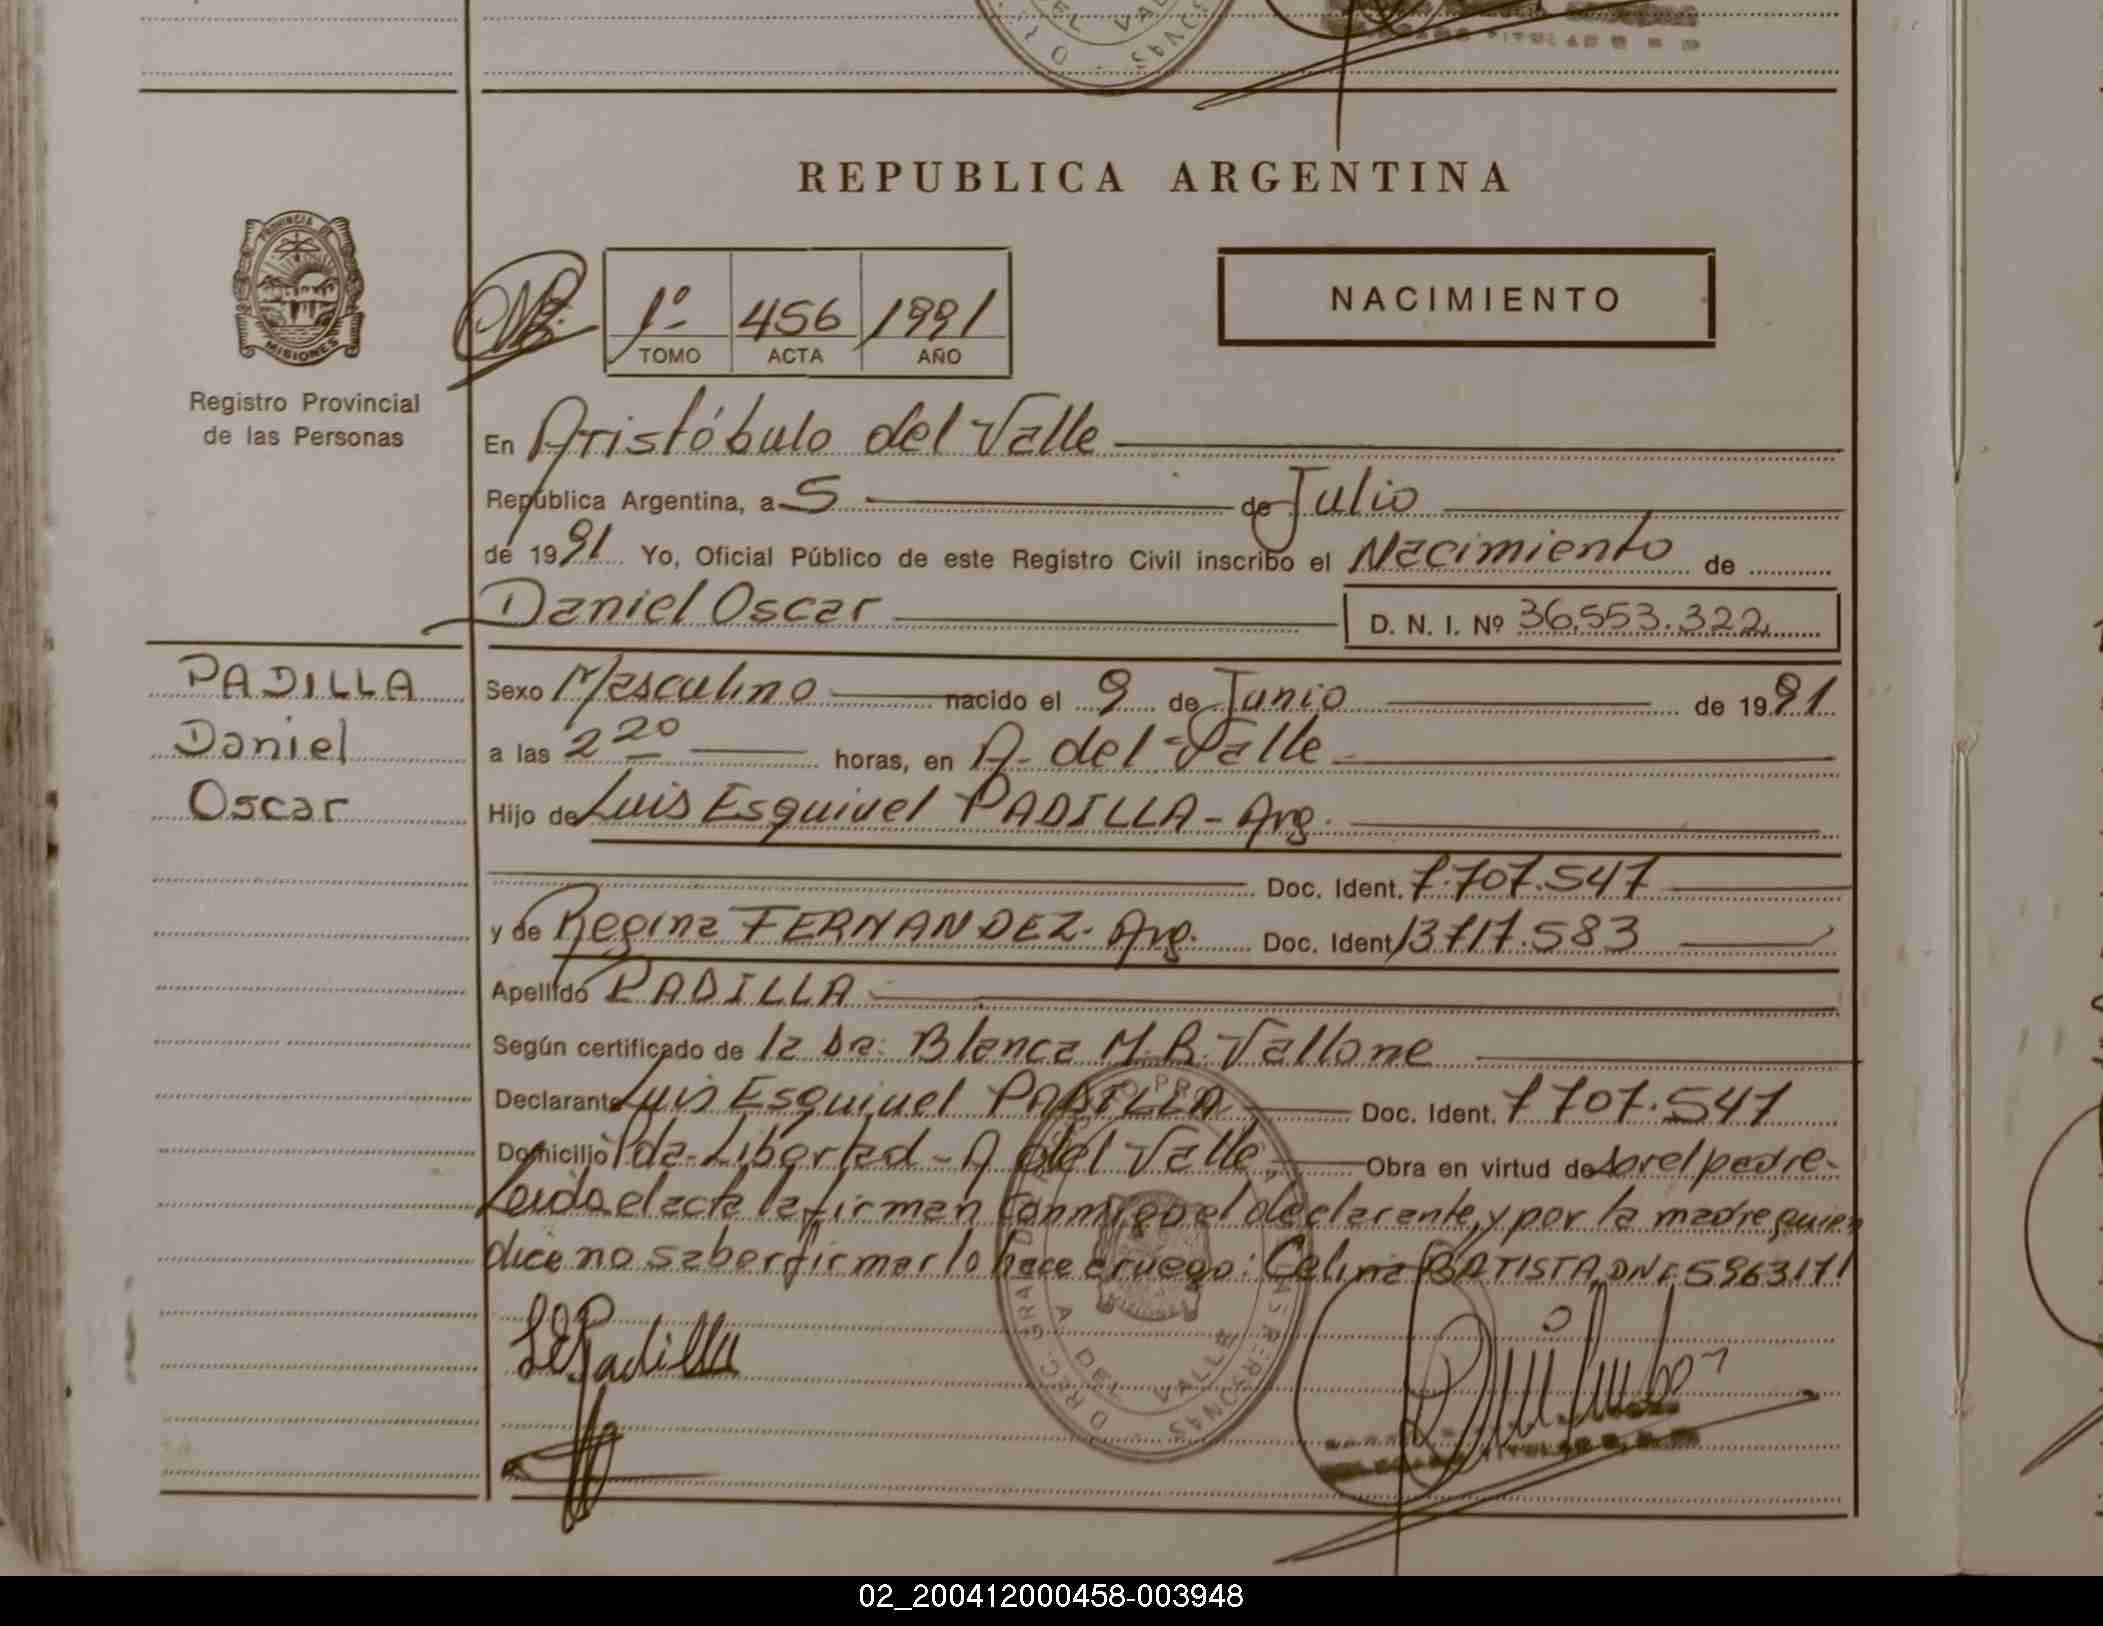 REPUBLICA ARGENTINA
PROVINCIA DE
MISIONES
Registro Provincial
de las Personas
1º 456 1991
TOMO ACTA AÑO
NACIMIENTO
En Aristóbulo del Valle
República Argentina, a 5 de Julio
de 1991 Yo, Oficial Público de este Registro Civil inscribo el Nacimiento de
Daniel Oscar D. N. I. Nº 36.553.322
PADILLA
Daniel
Oscar
Sexo Masculino nacido el 9 de Junio de 1991
a las 2 20 horas, en A. del Valle
Hijo de Luis Esquivel PADILLA - Arg.
Doc. Ident. 7.707.547
y de Regina FERNANDEZ - Arg. Doc. Ident. 13717.583
Apellido PADILLA
Según certificado de la Dra: Blanca M.R. Vallone
Declarante Luis Esquivel PADILLA Doc. Ident. 7707.547
Domicilio Pda. Libertad - A del Valle Obra en virtud de ser el padre-
Leida el acta la firman conmigo el declarante, y por la madre quien
dice no saber firmar lo hace a ruego: Celina BATISTA, DNI 5963171
LEPadilla
A DEL VALLE
02_200412000458-003948